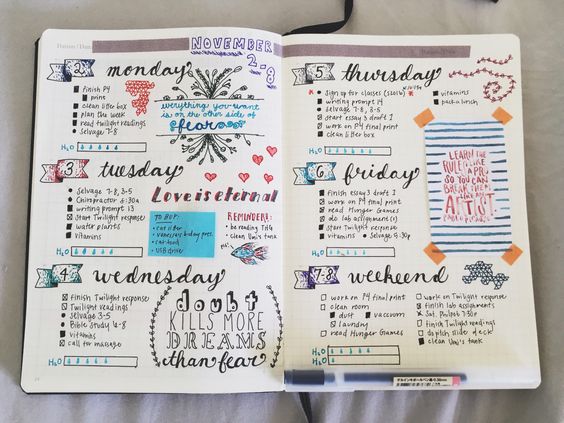 NOVEMBER
2-8
2
monday
finish P4
print
clean litter box
plan the week
read twilight readings
Selvage 7-8
H₂O
everything you want
is on the other side of
fear
3
tuesday
Selvage 7-8, 3-5
Chiropractor 6:30a
writing prompt 13
Start Twilight response
water plants
vitamins
H₂O
Love is eternal
TO BUY:
cat litter
vanessa's bday pres.
cat food
USB drive
REMINDERS:
be reading
clean Umi's tank
4
wednesday
finish Twilight response
Twilight readings
Selvage 3-5
Bible Study 6-8
vitamins
call for massage
H₂O
doubt
KILLS MORE
DREAMS
than fear
5
thursday
Sign up for classes
writing prompt 14
Selvage 7-8, 3-5
start essay 3 draft 1
work on P4 final print
clean litter box
vitamins
pack lunch
H₂O
6
friday
finish essay 3 draft 1
work on P4 final print
read Hunger Games
do lab assignment(s)
start Twilight response
vitamins
Selvage
H₂O
LEARN THE
RULES LIKE
A PRO,
SO YOU CAN
BREAK THEM
LIKE AN
ARTIST
7-8
weekend
work on P4 final print
clean room
dust
vaccum
laundry
read Hunger Games
work on Twilight response
finish lab assignments
finish Twilight readings
clean Umi's tank
H₂O